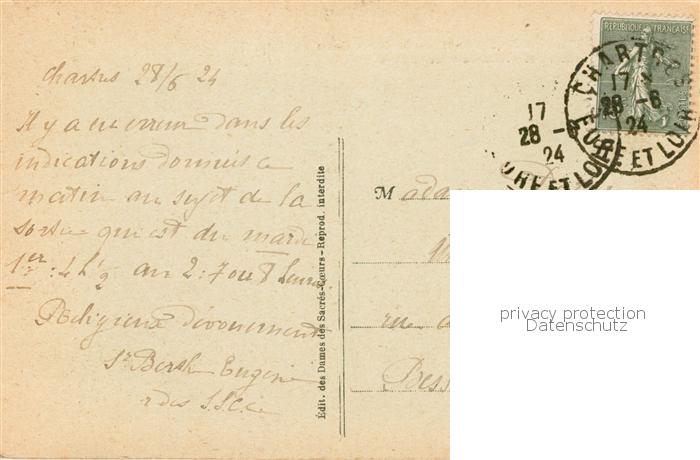 Chartres 28/6 24
Il y a eu erreur dans les
indications données ce
matin au sujet de la
sortie qui est du mardi
1er : 4h½ au 2 : 7 ou 8 heures
Religieux dévouement
Sr Berth Eugénie
r des S.S.C.C.
Édit. des Dames des Sacrés-Cœurs - Reprod. interdite
REPUBLIQUE FRANÇAISE
CHARTRES
17
28 -6
24
EURE ET LOIR
17
28 -6
24
EURE ET LOIR
Mada
Bess
privacy protection
Datenschutz